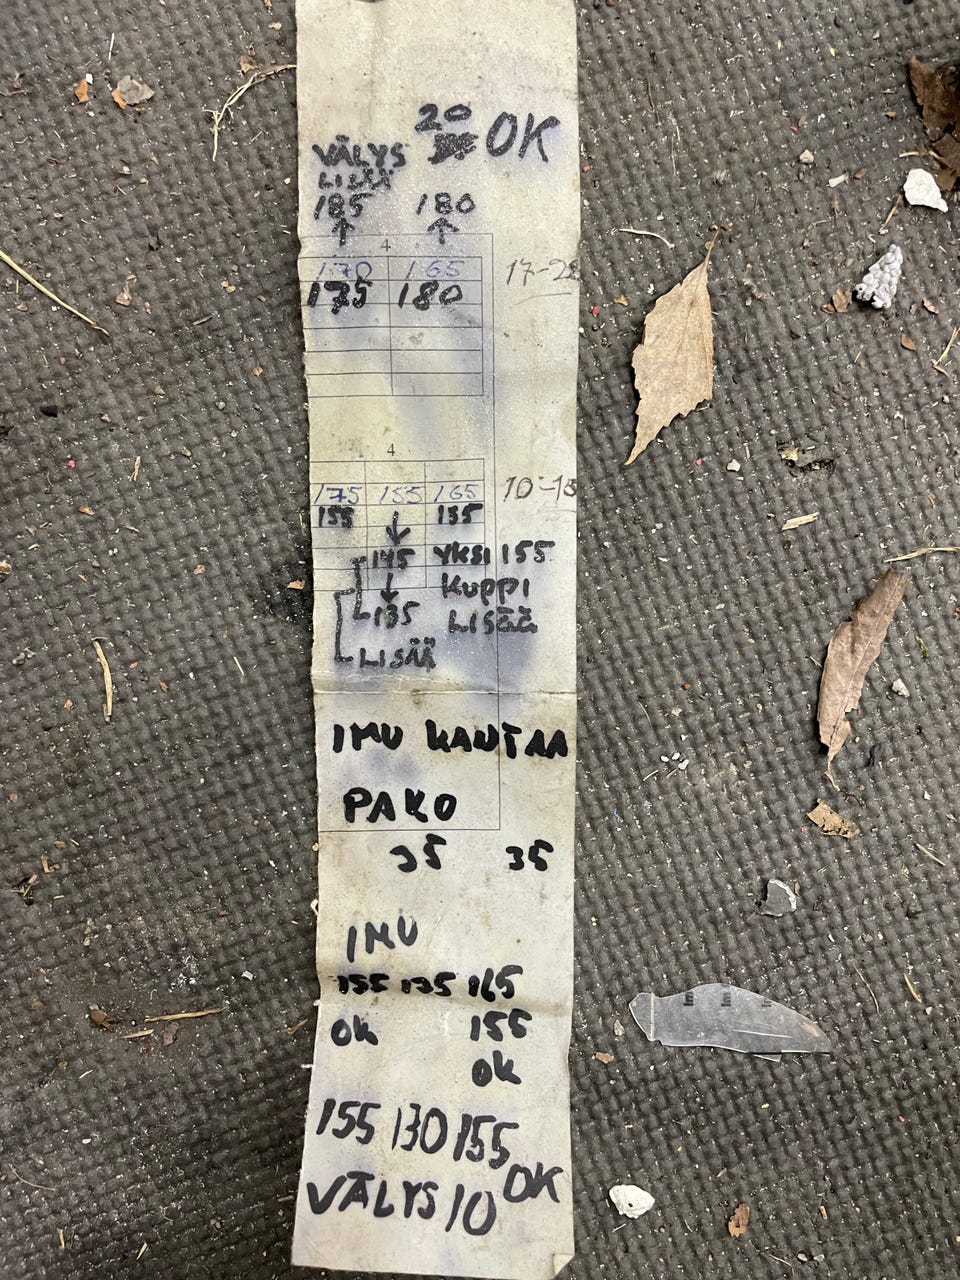 20 OK
VÄLYS
LISÄÄ
185 180
↑ ↑
4
170 165 17-22
175 180
4
175 155 165 10-15
155 135
↓
145 YKSI 155
↓ KUPPI
135 LISÄÄ
LISÄÄ
IMU KANTAA
PAKO
35 35
IMU
155 135 165
OK 155
OK
155 130 155 OK
VÄLYS 10